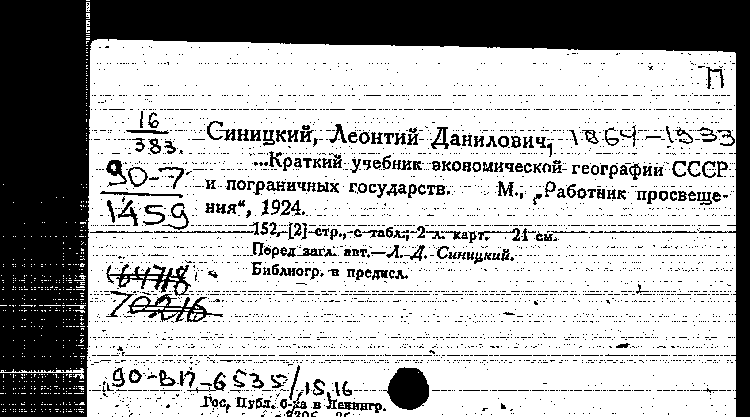 П
16
383.
Синицкий, Леонтий Данилович, 1864-1933
...Краткий учебник экономической географии СССР
90-7
и пограничных государств. М., „Работник просвеще-
1459
ния“, 1924.
152, [2] стр., с табл.; 2 л. карт. 21 см.
Перед загл. авт.—Л. Д. Синицкий.
Библиогр. в предисл.
70216
90-ВП-6535/15,16
Гос. Публ. б-ка в Ленингр.